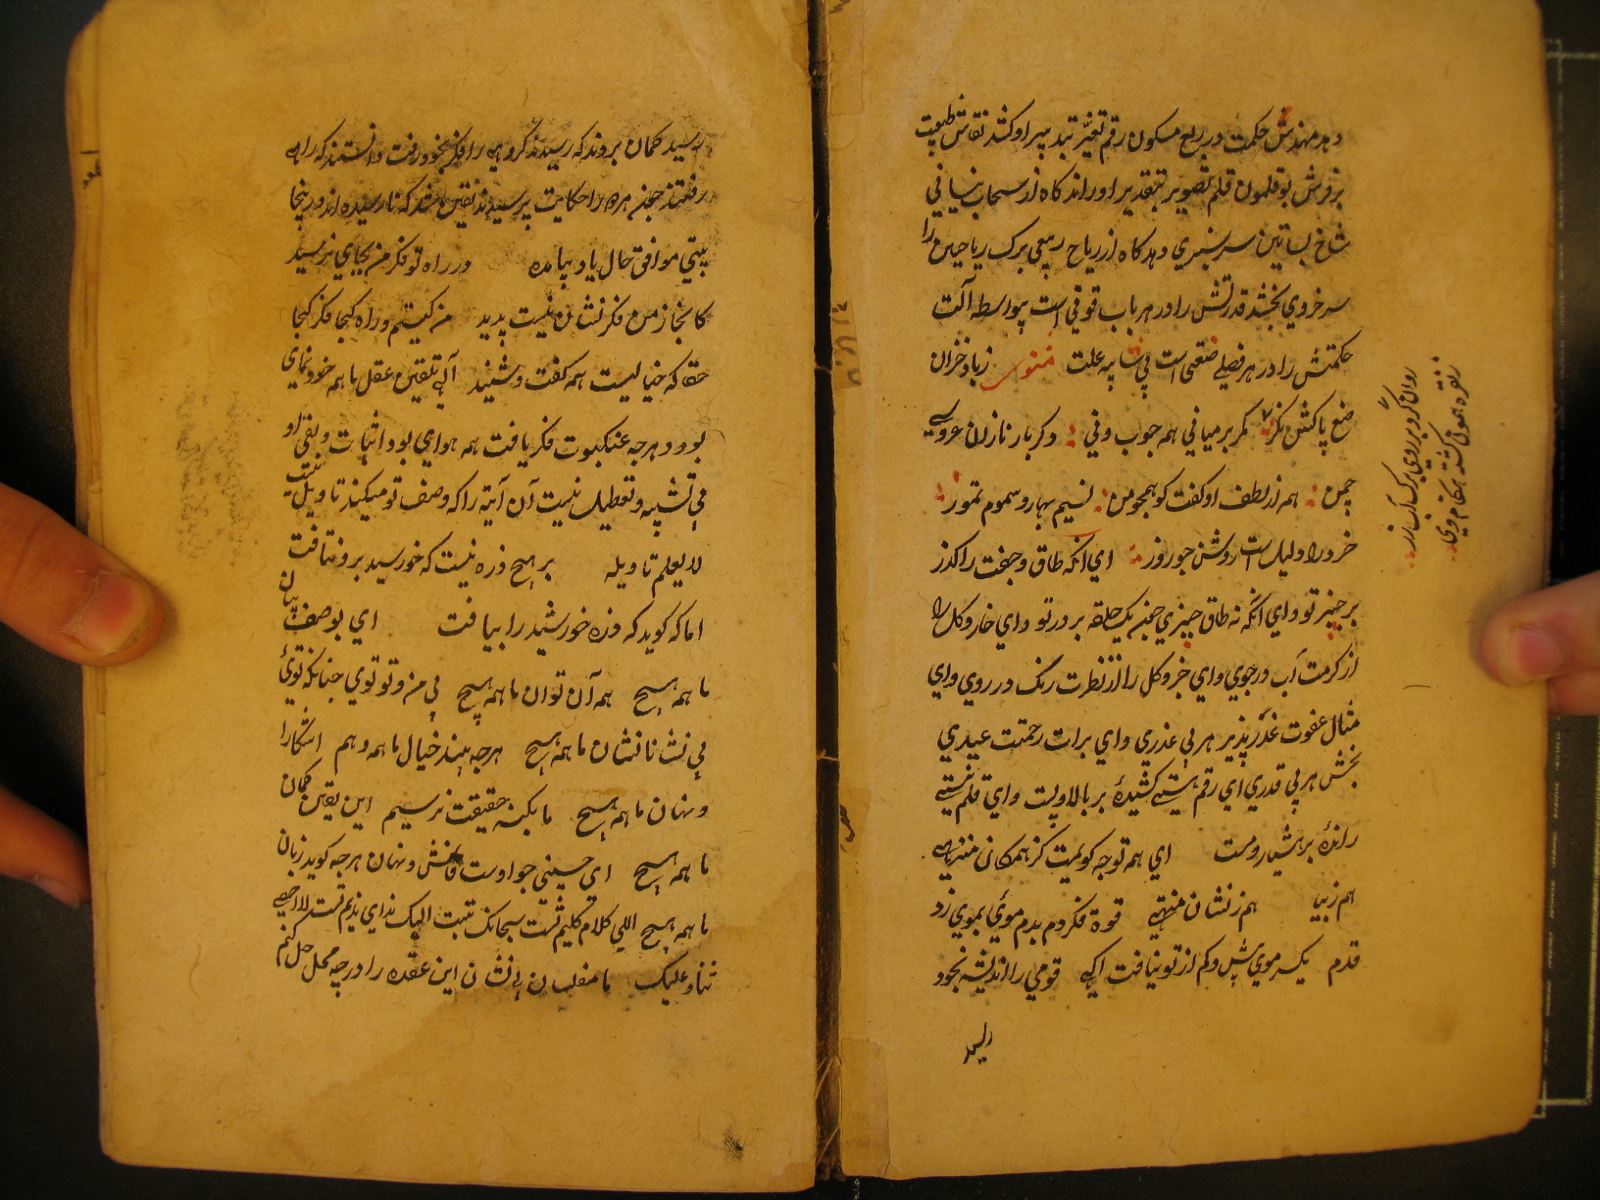 دهد مهندس حکمت در ربع مسکون رقم تغیر تبدیر او کشد نقاش طبیعت
بر فرش بوقلمون قلم تصویر بتقدیر او راند کاه از سحاب نیسانی
شاخ بساتین سرسبزی دهد کاه از ریاح ربیعی برک ریاحین را
سرخروی بخشد قدرتش را در هر باب قوتی است بواسطه آلت
حکمتش را در هر فصلی صنعی است بی شایبه علت مثنوی زباد خزان
صنع پاکش نکر مکر بر میانی هم جوب و نی دکر بار نازان عروسی
چمن همه از لطف او کفت کو همجو من نسیم بهار و سموم تموز
خرد را دلیل است روشن جو روز ای انکه طاق و جفت را کذر
بر چنبر تو وای انکه نه طاق چنبری جفته یک حلقه بر در تو وای خار و کل را
از کرمت آب در جوی وای جزو کل را از نظرت رنک در روی وای
مثال عفوت عذر پذیر هر بی عذری وای برات رحمتت عیدی
بخش هر بی قدری ای رقم هستی کشیده بر بالا و پست وای قلم نیستی
رانده بر هشیار و مست ای هم توجه کویمت کز همکان منزهی
هم زبیا هم ز نشان منتهی قوة فکر و م بدم موئی بموی زد
قدم یکسر موی بیش و کم از تو نیافت آکهی قومی را اندیشه بخود
رسید
روان کرد بر روی برک آب زر
ز نقره همه کشته هنکام دی
رسید کمان بروند که رسیدند کروهی را فکر بخود رفت دانستند که راهی
رفتند جند همه را حکایت پرسیدند یقین شد که نارسیده اند درینجا
بیتی موافق حال یاد بیامده در راه تو فکر من بجای نرسید
کانجا ز من فکر نشان نیست پدید من کیستم و راه کجا فکر کجا
حقا که خیالیست همه کفت و شنید آلهی تلقین عقل ما همه خودنمای
بود و هرجه عنکبوت فکر یافت همه هوای بود اثبات و نفی او
بی تشبیه و تعطیل نیست آن آیه را که وصف تو میکند تاویل نیست
لا یعلم تاویله بر هیچ ذره نیست که خورشید بر و نتافت
اما که کوید که ذره خورشید را بیافت ای بوصف بیان
ما همه هیچ همه آن توان ما همه هیچ بی من و تو توی جنانکه توئی
بی نشانا نشان ما همه هیچ هرجه بیند خیال ما همه وهم آشکارا
و نهان ما همه هیچ ما بکنه حقیقت نرسیم این یقین کمان
ما همه هیچ ای حسینی جو اوست فاش و نهان هرجه کوید زبان
ما همه هیچ الهی کلام کلیم تست سبحانک تبت الیک ندای ندیم تست لا احصی
ثناء علیک ما مفلسان بی نشان این عقده را درجه محل حل کنیم